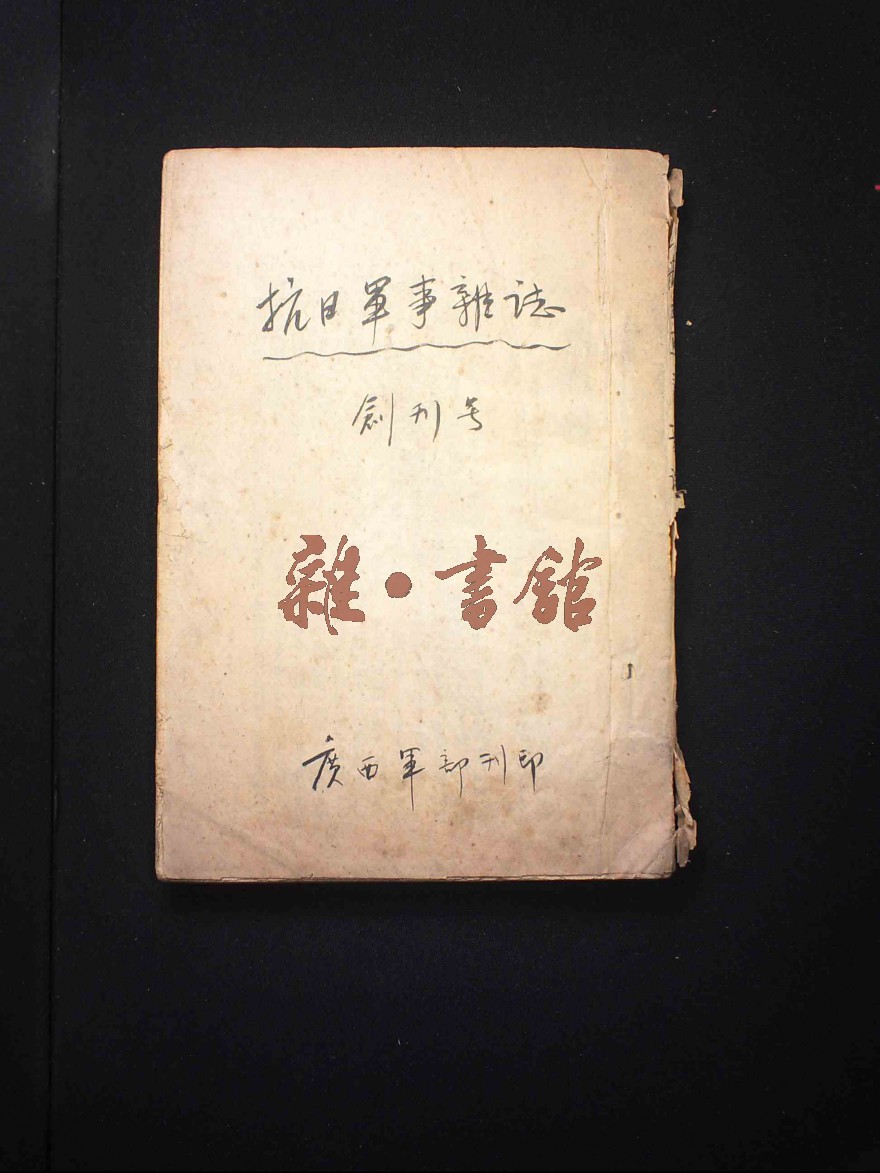 抗日軍事雜誌
創刊号
雜·書館
廣西軍部刊印